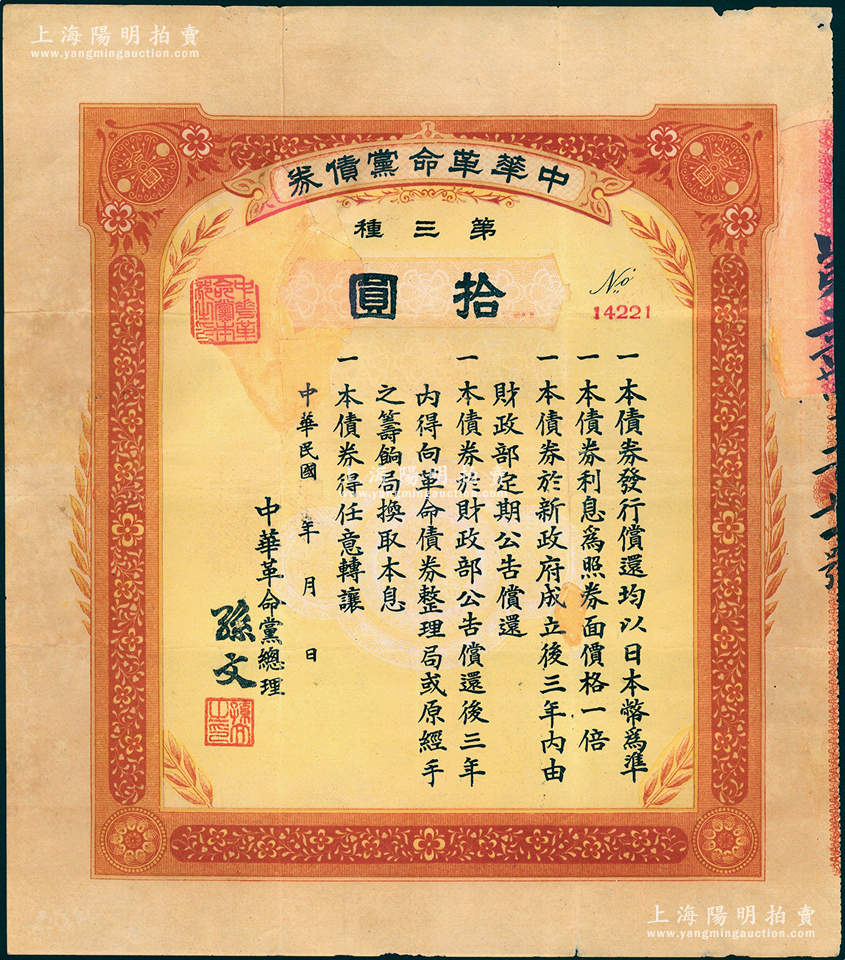 上海陽明拍賣
www.yangmingauction.com
中華革命黨債券
第三種
拾圓
No
14221
一本債券發行償還均以日本幣爲準
一本債券利息爲照券面價格一倍
一本債券於新政府成立後三年內由
財政部定期公告償還
一本債券於財政部公告償還後三年
內得向革命債券整理局或原經手
之籌餉局換取本息
一本債券得任意轉讓
中華民國 年 月 日
中華革命黨總理
孫文
中華革命黨本部之印
孫文之印
上海陽明拍賣
www.yangmingauction.com
上海陽明拍賣
www.yangmingauction.com